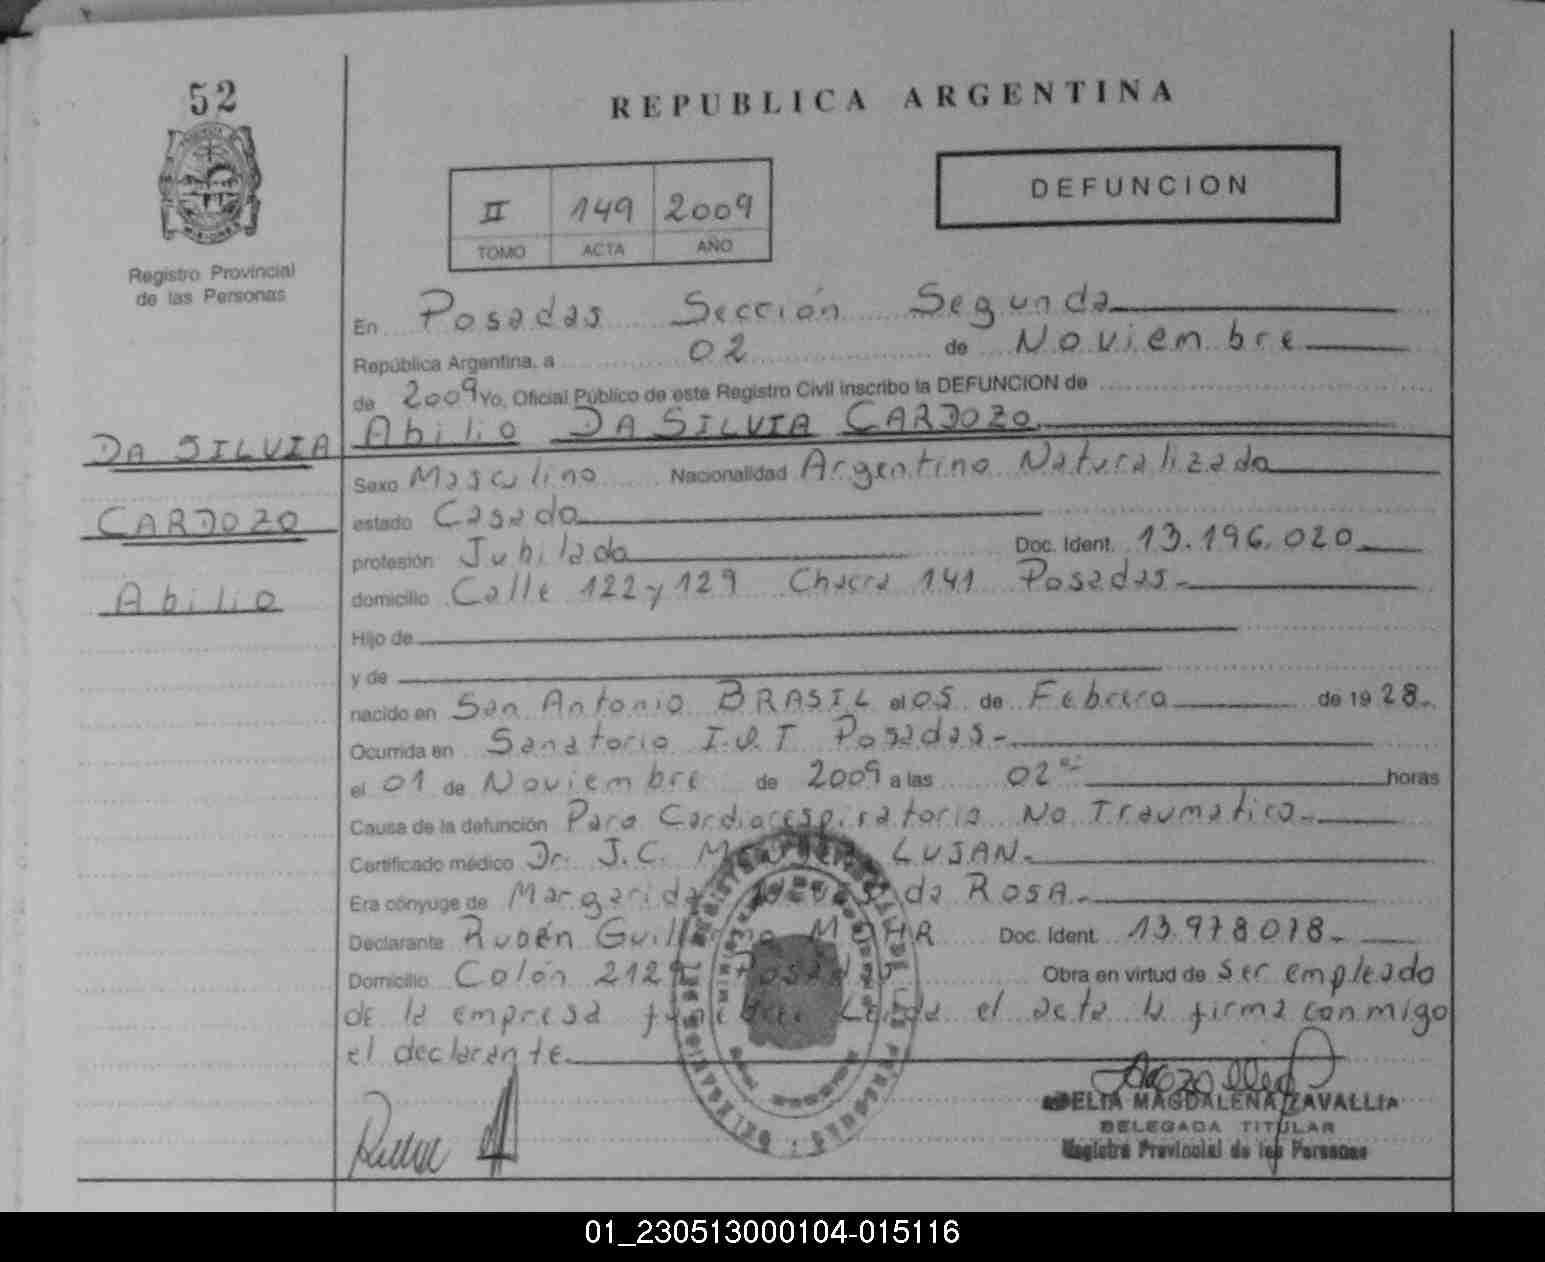 52
REPUBLICA ARGENTINA
II 149 2009
TOMO ACTA AÑO
DEFUNCION
Registro Provincial
de las Personas
En Posadas Sección Segunda
República Argentina, a 02 de Noviembre
de 2009 Yo, Oficial Público de este Registro Civil inscribo la DEFUNCION de
Abilio DA SILVIA CARDOZO
DA SILVIA
CARDOZO
Abilio
Sexo Masculino Nacionalidad Argentino Naturalizado
estado Casado
profesión Jubilado Doc. Ident. 13.196.020
domicilio Calle 122 y 129 Chacra 141 Posadas.-
Hijo de
y de
nacido en San Antonio BRASIL el 05 de Febrero de 1928.
Ocurrida en Sanatorio I.O.T Posadas-
el 01 de Noviembre de 2009 a las 02 horas
Causa de la defunción Paro Cardiorespiratorio No Traumatico.-
Certificado médico Dr. J.C. LUJAN.-
Era cónyuge de Margarida da ROSA.-
Declarante Rubén Guillermo MOHR Doc. Ident. 13.978.078.-
Domicilio Colón 212 Posadas Obra en virtud de ser empleado
de la empresa funebre Leida el acta la firma conmigo
el declarante.
DELIA MAGDALENA ZAVALLIA
DELEGADA TITULAR
Registro Provincial de las Personas
01_230513000104-015116